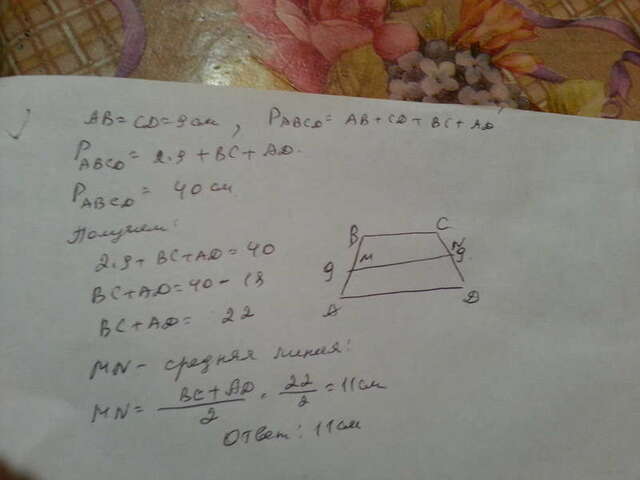 AB = CD = 9 см, P ABCD = AB + CD + BC + AD
P ABCD = 2.9 + BC + AD.
P ABCD = 40 см
Получим:
2.9 + BC + AD = 40
BC + AD = 40 - 18
BC + AD = 22
B C
M N
9 9
A D
MN - средняя линия:
MN = BC + AD / 2 . 22 / 2 = 11 см
Ответ: 11 см